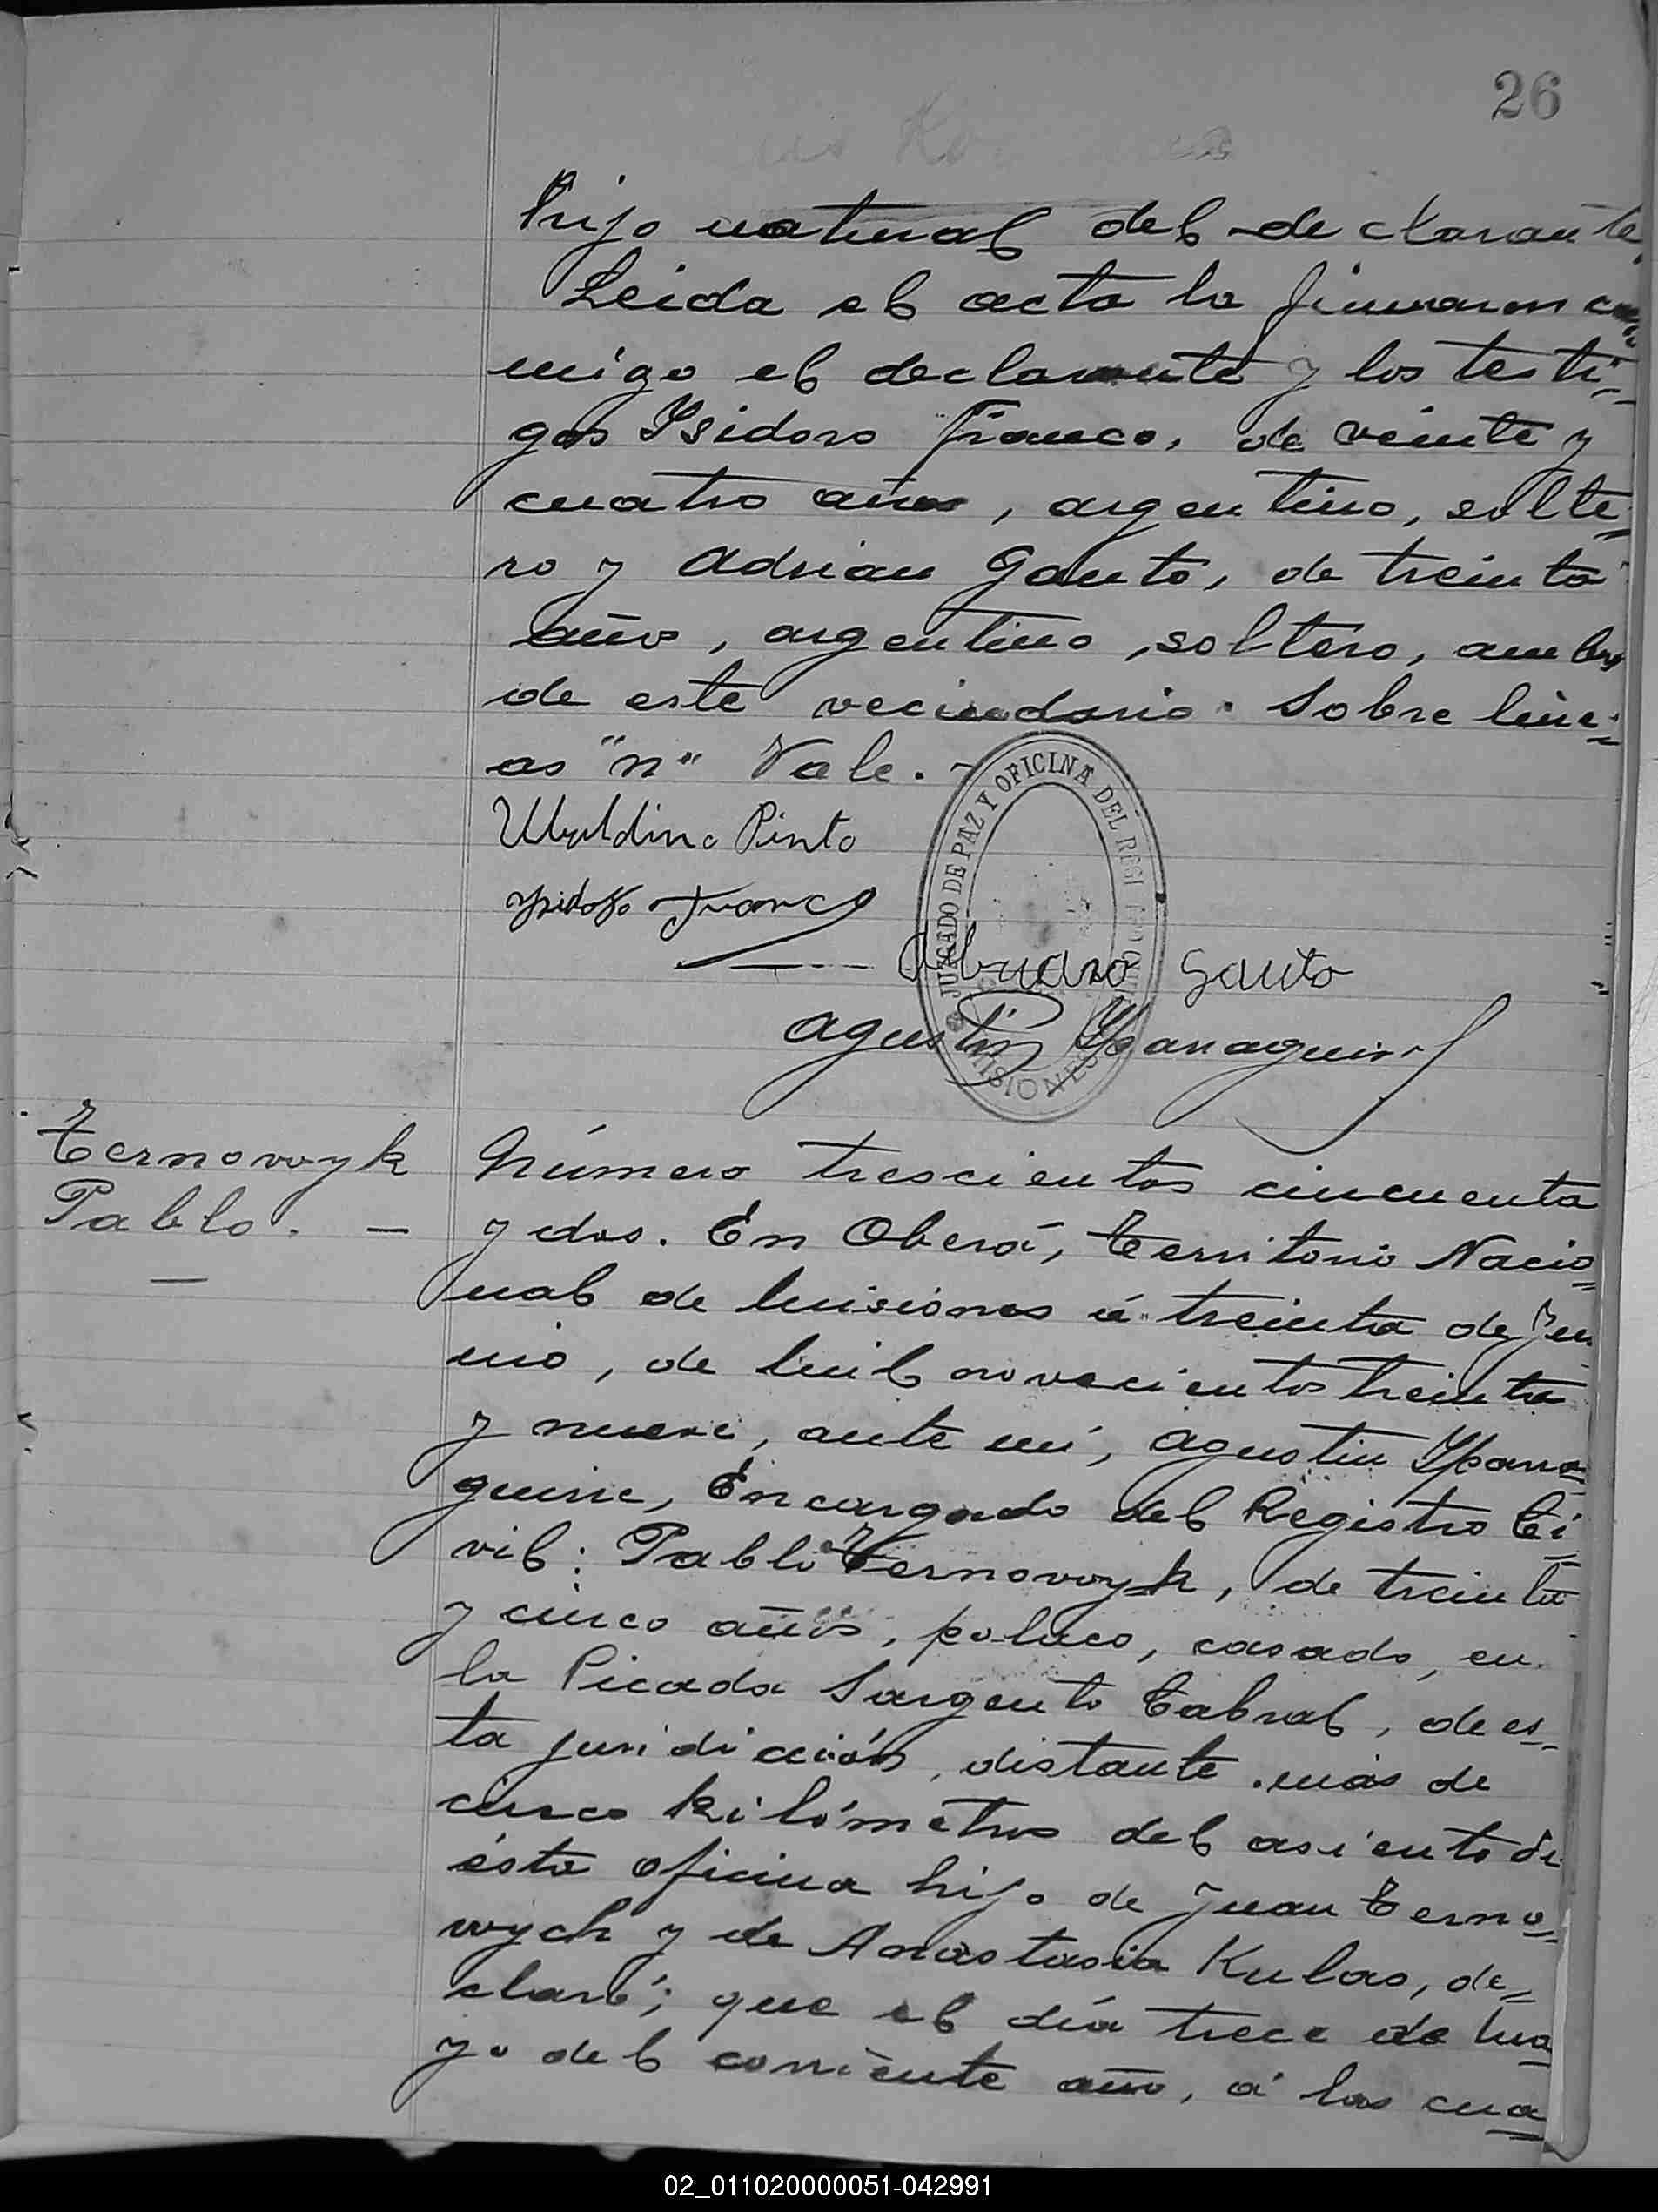 26
hijo natural del declarante.
Leida el acta la firmaron con
migo el declarante y los testi-
gos Ysidoro Franco, de veinte y
cuatro años, argentino, solte-
ro y Adrian Gauto, de treinta
años, argentino, soltero, ambos
de este vecindario. Sobre líne-
as "n" Vale. -
Ubaldino Pinto
Ysidoro Franco
JUZGADO DE PAZ Y OFICINA DEL REGI
MISIONES
Gauto
Agustin Ypanaguirre
Zernovoyk
Pablo. -
Número trescientos cincuenta
y dos. En Oberá, Territorio Nacio-
nal de Misiones á treinta de Ju-
nio, de mil novecientos treinta
y nueve, ante mí, Agustin Ypana-
guirre, Encargado del Registro Ci-
vil: Pablo Zernovoyk, de treinta
y cinco años, polaco, casado, en
la Picada Sargento Cabral, de es-
ta juridicción, distante más de
cinco kilómetros del asiento de
ésta oficina hijo de Juan Zerno-
voych y de Anastasia Kulas, de-
claró; que el día trece de Ma-
yo del corriente año, á las cua-
02_011020000051-042991